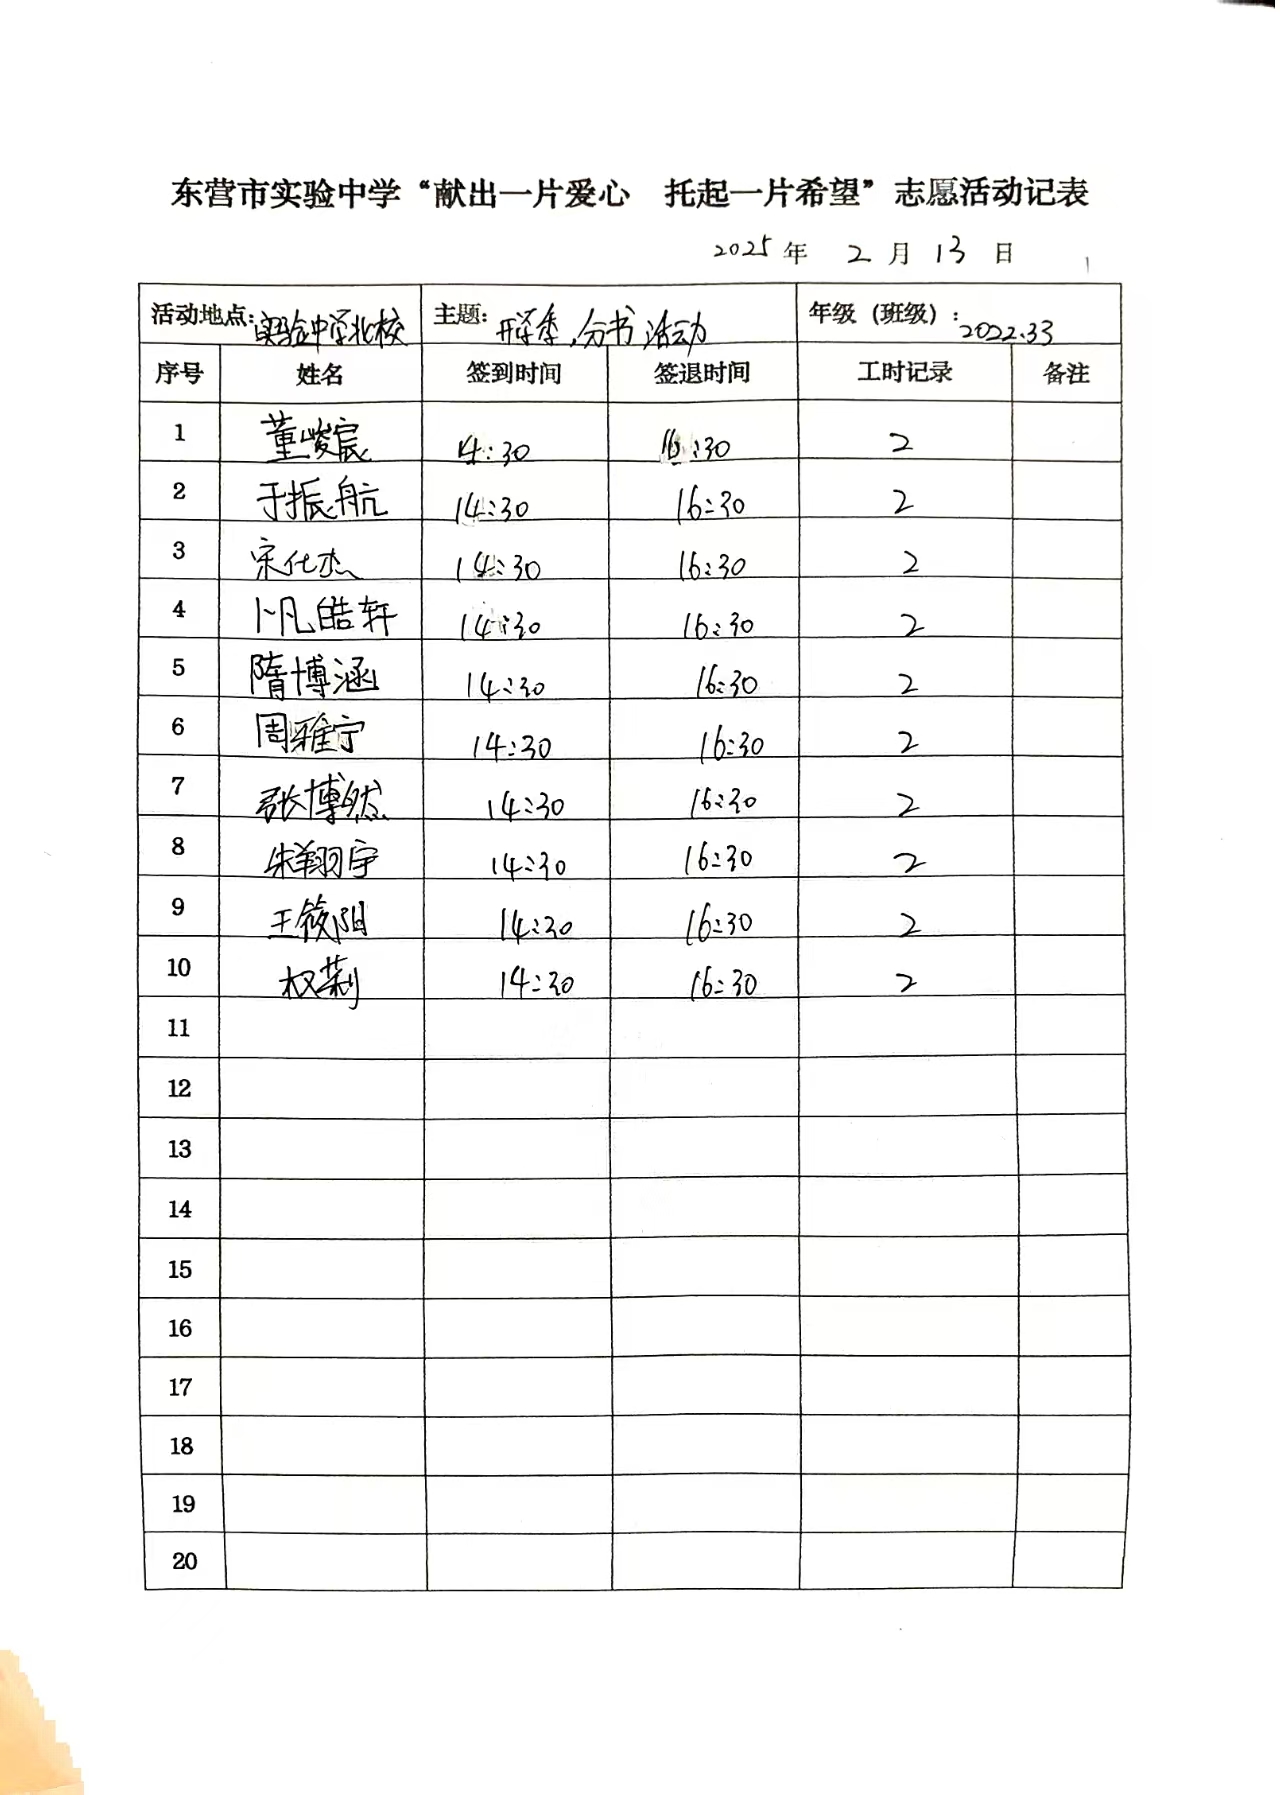 东营市实验中学“献出一片爱心 托起一片希望”志愿活动记表
2025 年 2 月 13 日
活动地点:实验中学北校 主题:开学季,分书活动 年级（班级）:2022.33
序号 姓名 签到时间 签退时间 工时记录 备注
1 董峻宸 14:30 16:30 2
2 于振航 14:30 16:30 2
3 宋仕杰 14:30 16:30 2
4 卜凡皓轩 14:30 16:30 2
5 隋博涵 14:30 16:30 2
6 周雅宁 14:30 16:30 2
7 张博然 14:30 16:30 2
8 朱翔宇 14:30 16:30 2
9 王筱阳 14:30 16:30 2
10 权莉 14:30 16:30 2
11
12
13
14
15
16
17
18
19
20